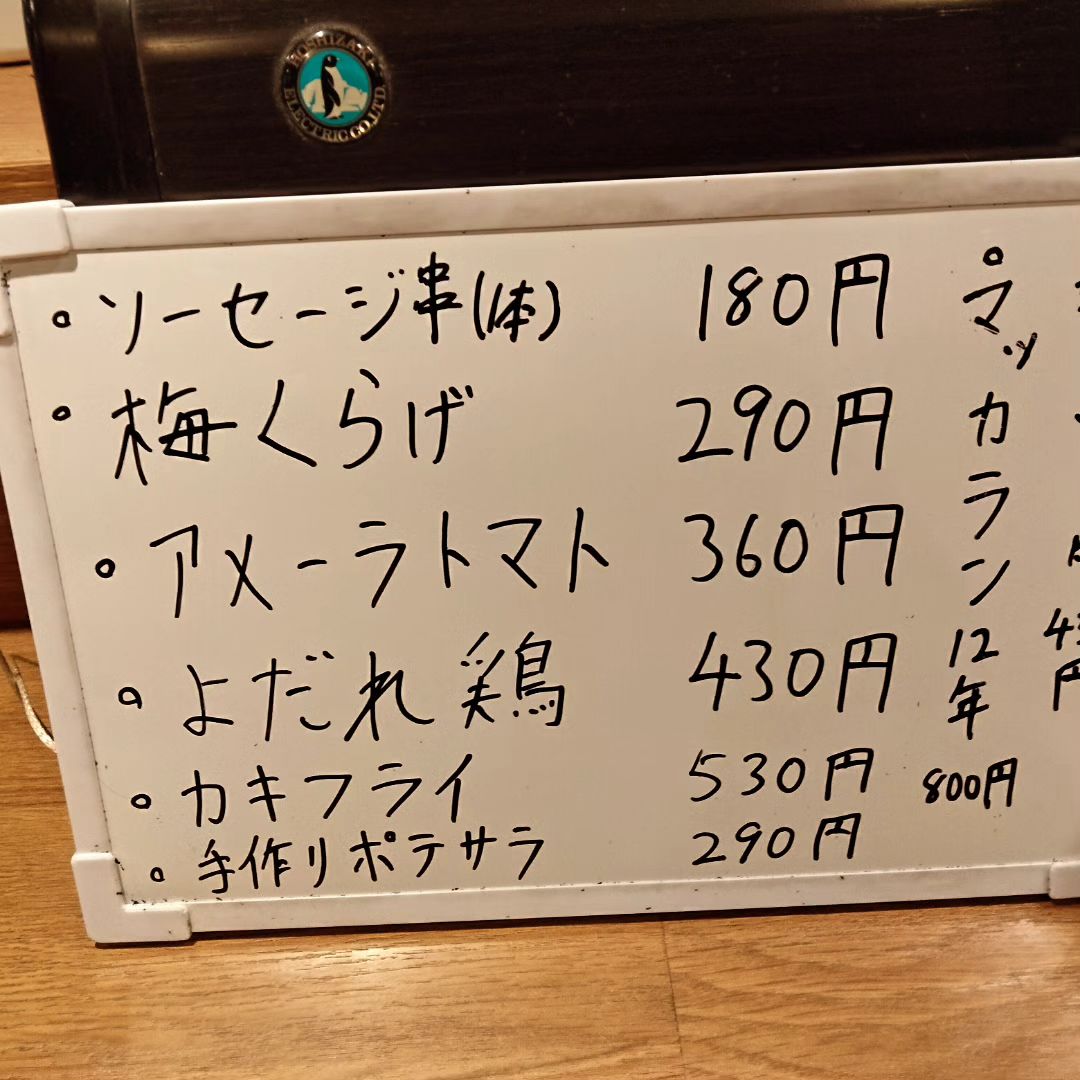 HOSHIZAKI ELECTRIC CO., LTD.
・ソーセージ串(1本) 180円
・梅くらげ 290円
・アメーラトマト 360円
・よだれ鶏 430円
・カキフライ 530円
・手作りポテサラ 290円
・マッカラン12年
800円